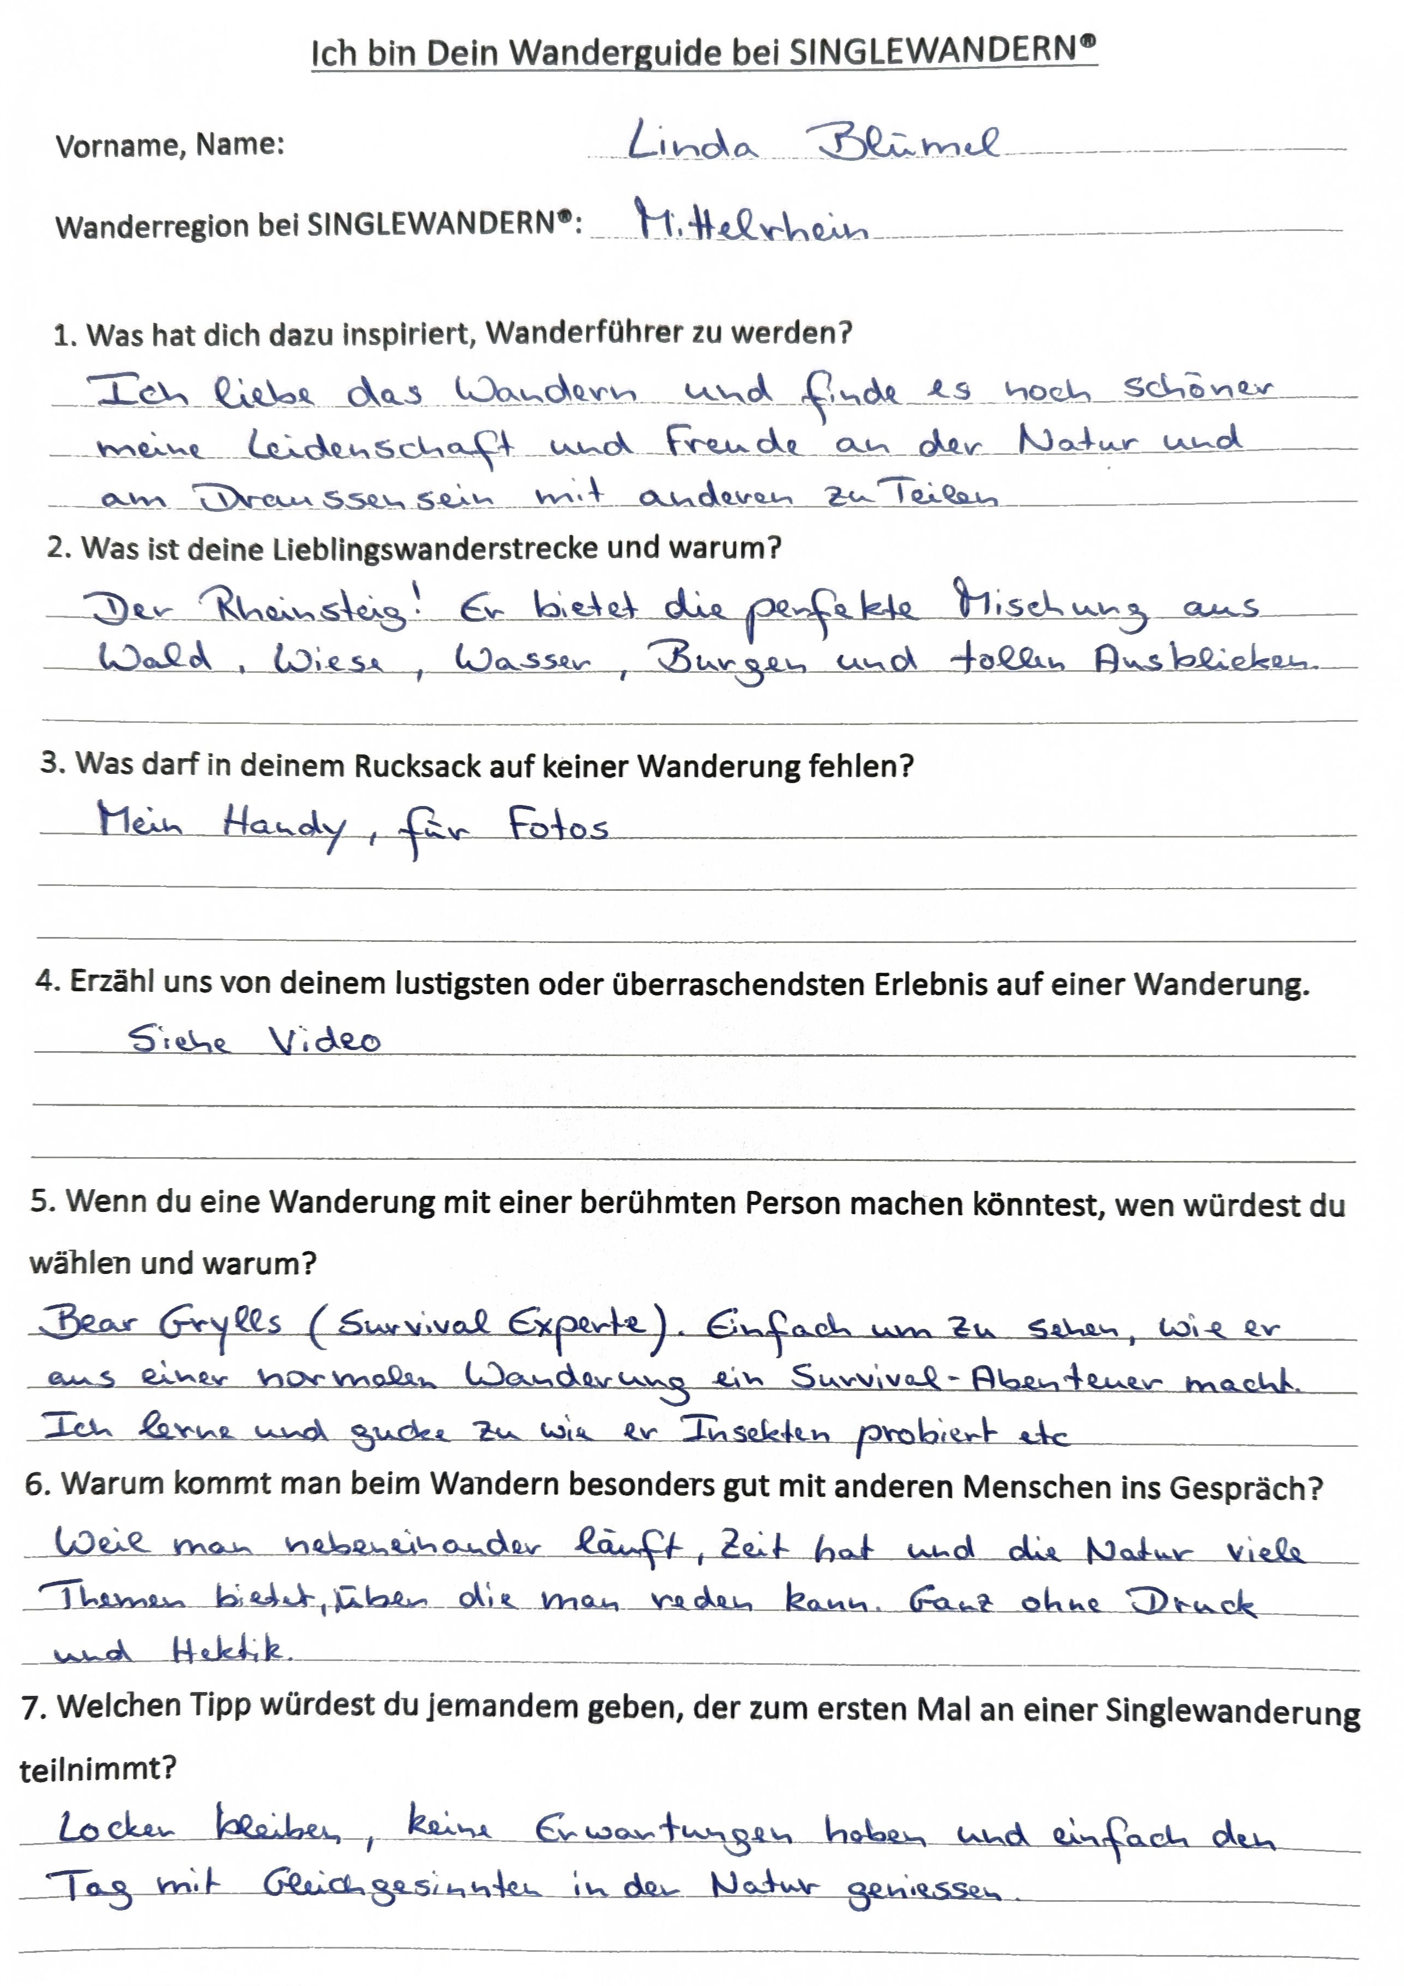 Ich bin Dein Wanderguide bei SINGLEWANDERN®
Vorname, Name: Linda Blümel
Wanderregion bei SINGLEWANDERN®: Mittelrhein
1. Was hat dich dazu inspiriert, Wanderführer zu werden?
Ich liebe das Wandern und finde es noch schöner
meine Leidenschaft und Freude an der Natur und
am Draussensein mit anderen zu Teilen
2. Was ist deine Lieblingswanderstrecke und warum?
Der Rheinsteig! Er bietet die perfekte Mischung aus
Wald, Wiese, Wasser, Burgen und tollen Ausblicken.
3. Was darf in deinem Rucksack auf keiner Wanderung fehlen?
Mein Handy, für Fotos
4. Erzähl uns von deinem lustigsten oder überraschendsten Erlebnis auf einer Wanderung.
Siehe Video
5. Wenn du eine Wanderung mit einer berühmten Person machen könntest, wen würdest du
wählen und warum?
Bear Grylls (Survival Experte). Einfach um zu sehen, wie er
aus einer normalen Wanderung ein Survival-Abenteuer macht.
Ich lerne und gucke zu wie er Insekten probiert etc
6. Warum kommt man beim Wandern besonders gut mit anderen Menschen ins Gespräch?
Weil man nebeneinander läuft, Zeit hat und die Natur viele
Themen bietet, über die man reden kann. Ganz ohne Druck
und Hektik.
7. Welchen Tipp würdest du jemandem geben, der zum ersten Mal an einer Singlewanderung
teilnimmt?
Locker bleiben, keine Erwartungen haben und einfach den
Tag mit Gleichgesinnten in der Natur geniessen.